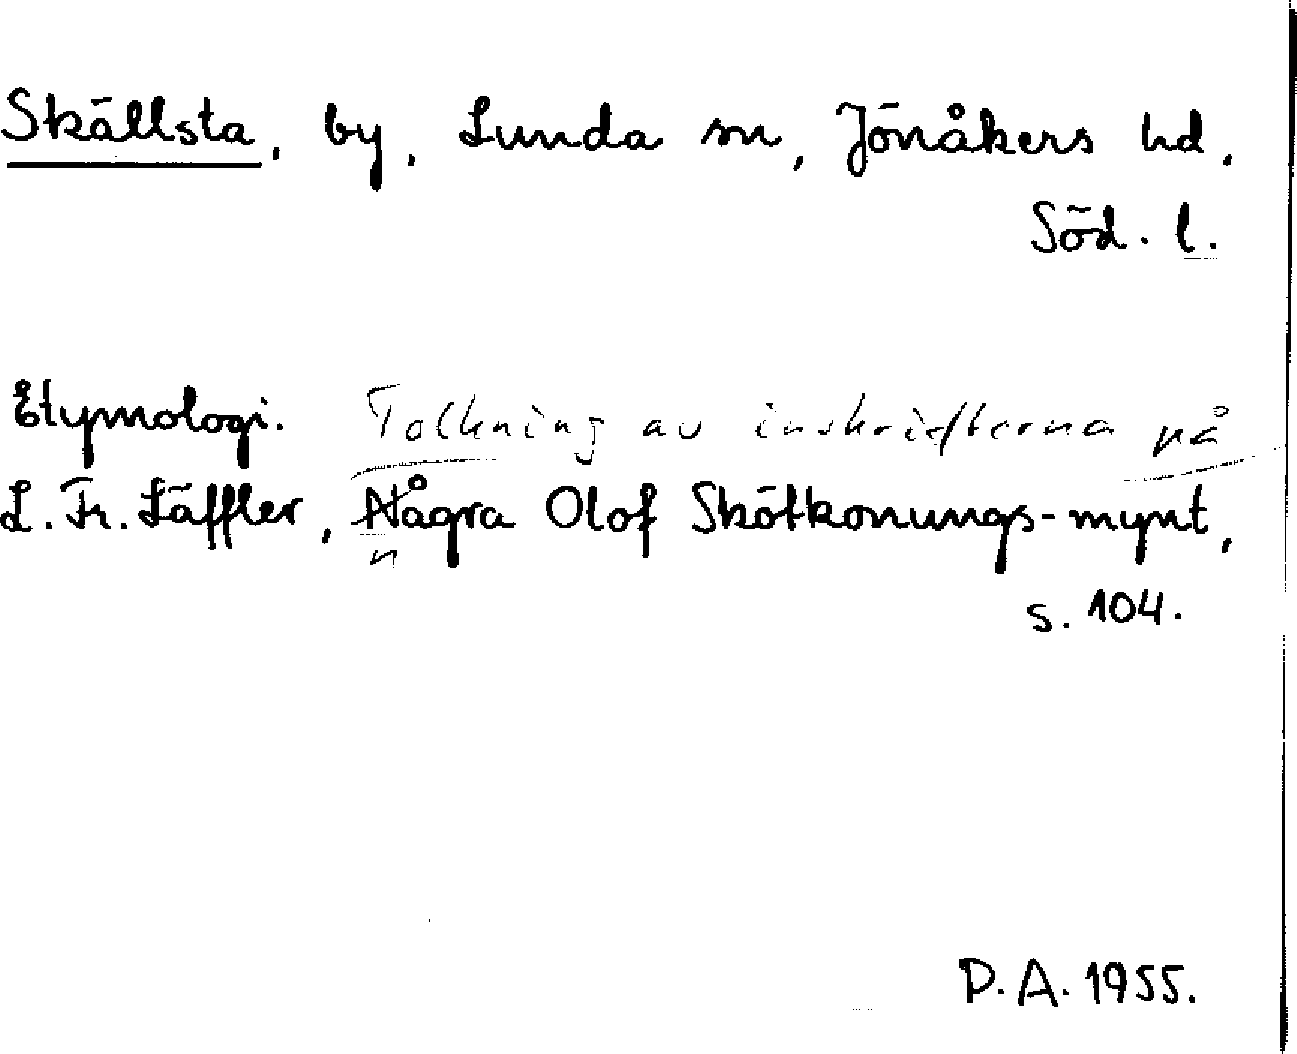 Skällsta, by, Lunda sn, Jönåkers hd,
Söd. l.
Etymologi. Tolkning av inskrifterna på
L. Fr. Läffler, Några Olof Skötkonungs-mynt,
n
s. 104.
P.A. 1955.